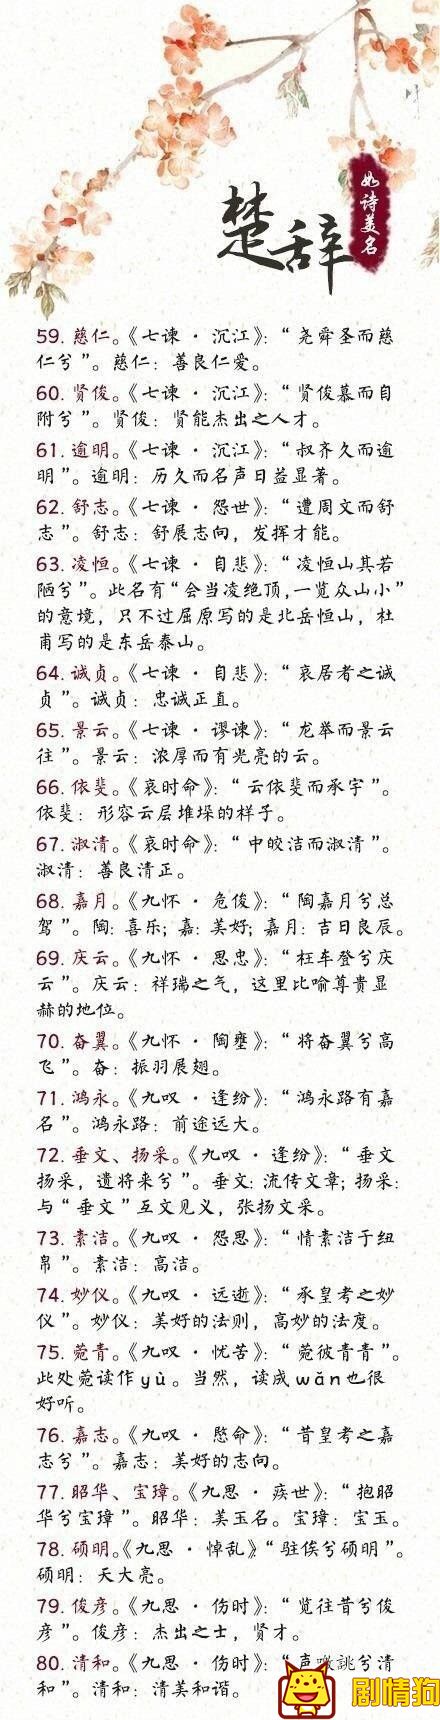 楚辞
如诗美名
59. 慈仁。《七谏·沉江》：“尧舜圣而慈
仁兮”。慈仁：善良仁爱。
60. 贤俊。《七谏·沉江》：“贤俊慕而自
附兮”。贤俊：贤能杰出之人才。
61. 逾明。《七谏·沉江》：“叔齐久而逾
明”。逾明：历久而名声日益显著。
62. 舒志。《七谏·怨世》：“遭周文而舒
志”。舒志：舒展志向，发挥才能。
63. 凌恒。《七谏·自悲》：“凌恒山其若
陋兮”。此名有“会当凌绝顶，一览众山小”
的意境，只不过屈原写的是北岳恒山，杜
甫写的是东岳泰山。
64. 诚贞。《七谏·自悲》：“哀居者之诚
贞”。诚贞：忠诚正直。
65. 景云。《七谏·谬谏》：“龙举而景云
往”。景云：浓厚而有光亮的云。
66. 依斐。《哀时命》：“云依斐而承宇”。
依斐：形容云层堆垛的样子。
67. 淑清。《哀时命》：“中皎洁而淑清”。
淑清：善良清正。
68. 嘉月。《九怀·危俊》：“陶嘉月兮总
驾”。陶：喜乐；嘉：美好；嘉月：吉日良辰。
69. 庆云。《九怀·思忠》：“枉车登兮庆
云”。庆云：祥瑞之气，这里比喻尊贵显
赫的地位。
70. 奋翼。《九怀·陶壅》：“将奋翼兮高
飞”。奋：振羽展翅。
71. 鸿永。《九叹·逢纷》：“鸿永路有嘉
名”。鸿永路：前途远大。
72. 垂文、扬采。《九叹·逢纷》：“垂文
扬采，遗将来兮”。垂文：流传文章；扬采：
与“垂文”互文见义，张扬文采。
73. 素洁。《九叹·怨思》：“情素洁于纽
帛”。素洁：高洁。
74. 妙仪。《九叹·远逝》：“承皇考之妙
仪”。妙仪：美好的法则，高妙的法度。
75. 菀青。《九叹·忧苦》：“菀彼青青”。
此处菀读作yù。当然，读成wǎn也很
好听。
76. 嘉志。《九叹·愍命》：“昔皇考之嘉
志兮”。嘉志：美好的志向。
77. 昭华、宝璋。《九思·疾世》：“抱昭
华兮宝璋”。昭华：美玉名。宝璋：宝玉。
78. 硕明。《九思·悼乱》“驻俟兮硕明”。
硕明：天大亮。
79. 俊彦。《九思·伤时》：“览往昔兮俊
彦”。俊彦：杰出之士，贤才。
80. 清和。《九思·伤时》：“声噭誂兮清
和”。清和：清美和谐。
剧情狗